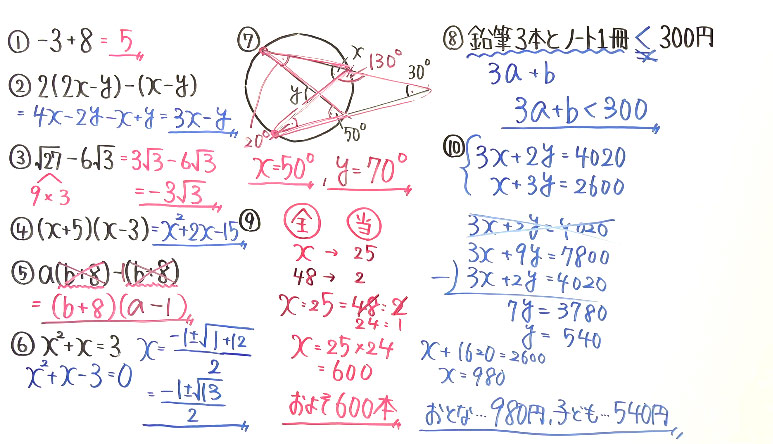 ① -3+8 = 5
② 2(2x-y)-(x-y)
= 4x-2y-x+y = 3x-y
③ √27 - 6√3 = 3√3 - 6√3
9×3
= -3√3
④ (x+5)(x-3) = x²+2x-15
⑤ a(b+8)-(b+8)
= (b+8)(a-1)
⑥ x²+x=3
x²+x-3=0
x = (-1±√1+12)/2
= (-1±√13)/2
⑦
x
130°
30°
y
20°
50°
x=50°, y=70°
⑧ 鉛筆3本とノート1冊 < 300円
3a+b
3a+b<300
⑨
全 当
x → 25
48 → 2
x:25=48:2
24:1
x=25×24
=600
およそ600本
⑩
3x+2y=4020
x+3y=2600
3x+2y=4020
3x+9y=7800
-) 3x+2y=4020
7y=3780
y=540
x+1620=2600
x=980
おとな…980円, 子ども…540円